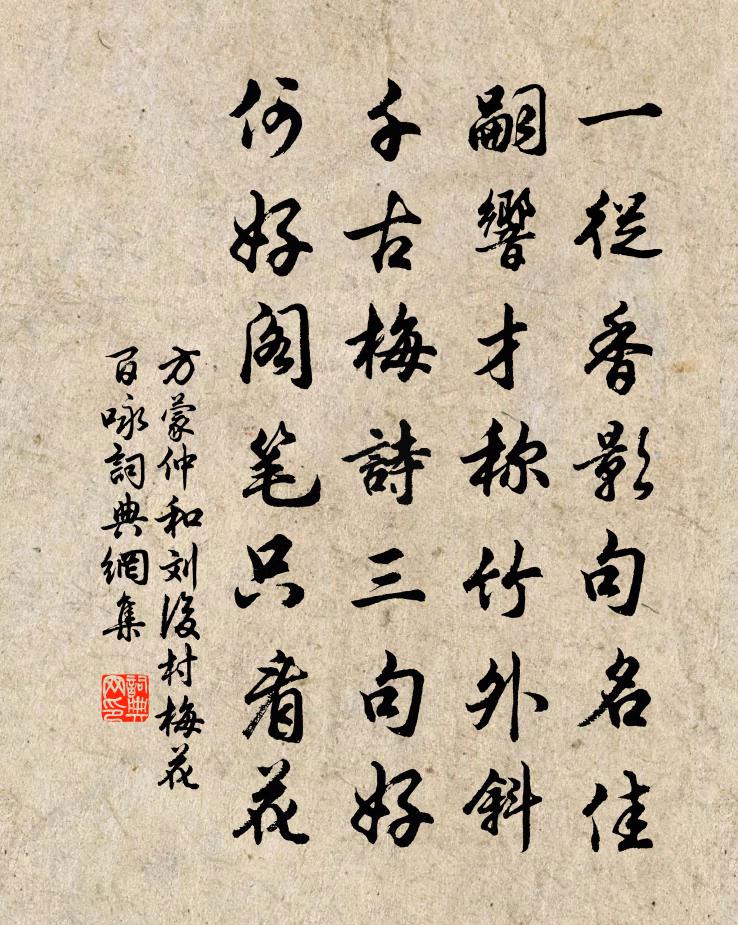 一從香影句名佳
嗣響才称竹外斜
千古梅詩三句好
何好阁笔只看花
方蒙仲和刘後村梅花
百咏詞典網集
詞典
网印